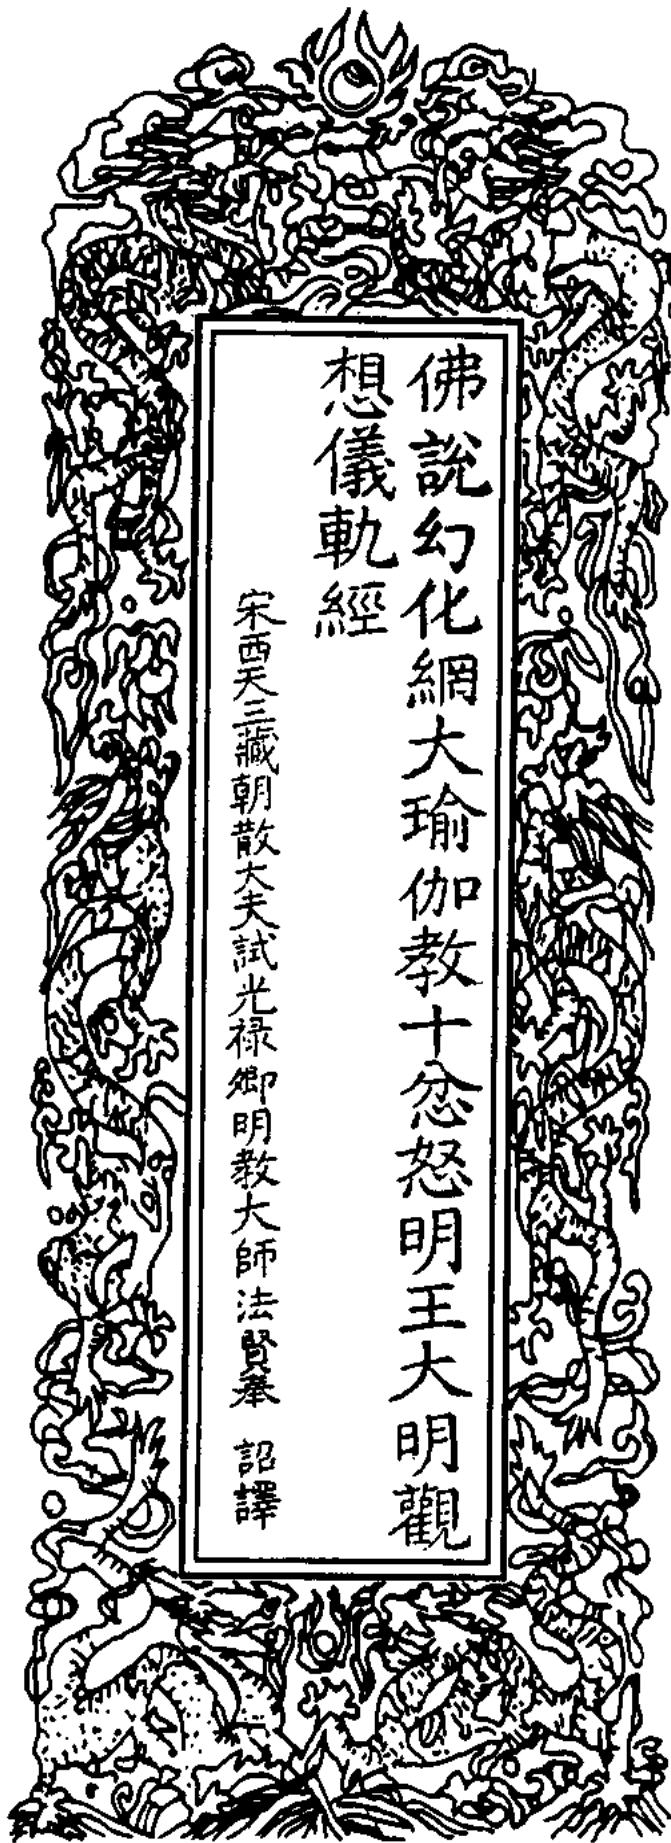 佛說幻化網大瑜伽教十忿怒明王大明觀
想儀軌經
宋西天三藏朝散大夫試光祿卿明教大師法賢奉　詔譯